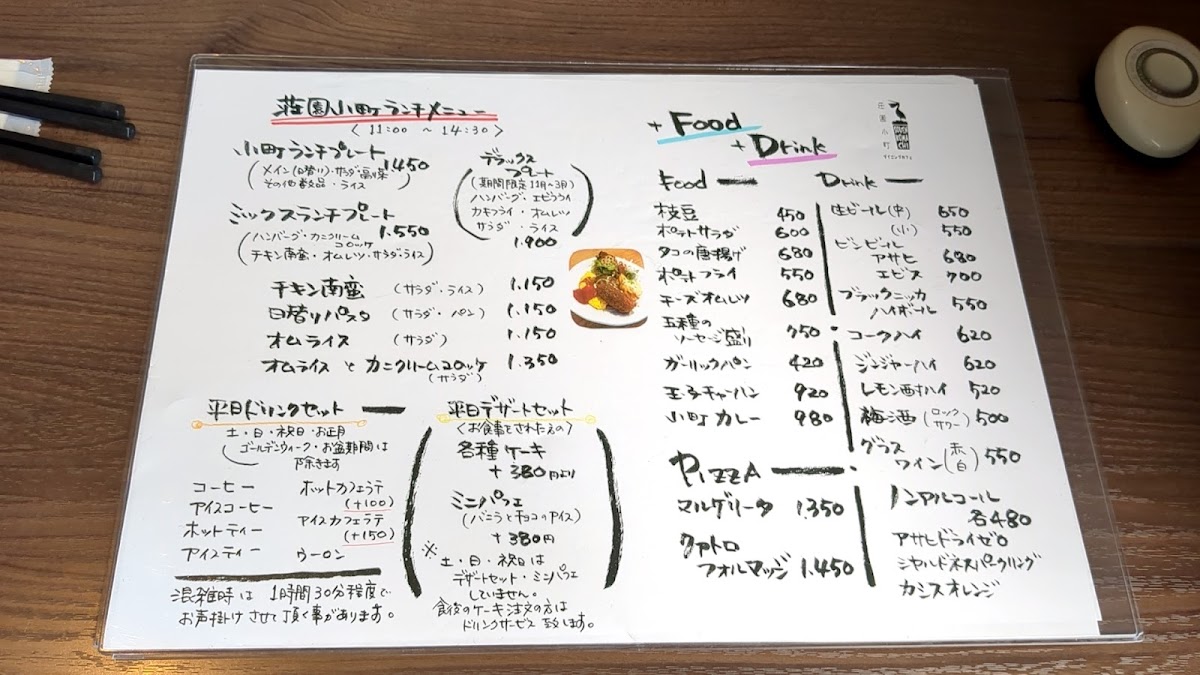 荘園小町ランチメニュー
〈 11:00 ~ 14:30 〉
小町ランチプレート
1.450
メイン(日替り)・サラダ・高川菜
その他数品・ライス
ミックスランチプレート
1.550
ハンバーグ・カニクリーム
コロッケ
チキン南蛮・オムレツ・サラダ・ライス
デラックス
プレート
(期間限定11月~3月)
ハンバーグ・エビフライ
カキフライ・オムレツ
サラダ・ライス
1.900
チキン南蛮 (サラダ・ライス) 1.150
日替りパスタ (サラダ・パン) 1.150
オムライス (サラダ) 1.150
オムライス と カニクリームコロッケ 1.350
(サラダ)
平日ドリンクセット
土・日・祝日・お正月
ゴールデンウィーク・お盆期間は
除きます
コーヒー
アイスコーヒー
ホットティー
アイスティー
ホットカフェラテ
(+100)
アイスカフェラテ
(+150)
ウーロン
混雑時は 1時間30分程度で
お声掛けさせて頂く事があります。
平日デザートセット
(お食事をされた方のみ)
各種ケーキ
+380円より
ミニパフェ
(バニラとチョコのアイス)
+380円
※
土・日・祝日は
デザートセット・ミニパフェ
していません。
食後のケーキ注文の方は
ドリンクサービス致します。
+ Food
+ Drink
荘園小町
Food
枝豆 450
ポテトサラダ 600
タコの唐揚げ 680
ポテトフライ 550
チーズオムレツ 680
五種の
ソーセージ盛り 750
ガーリックパン 420
玉子チャーハン 920
小町カレー 980
PIZZA
マルゲリータ 1.350
クァトロ
フォルマッジ 1.450
Drink
生ビール(中) 650
(小) 550
ビンビール
アサヒ 680
エビス 700
ブラックニッカ
ハイボール 550
コークハイ 620
ジンジャーハイ 620
レモン酎ハイ 520
梅酒 (ロック
サワー) 500
グラス
ワイン (赤
白) 550
ノンアルコール
各480
アサヒドライゼロ
シャルドネスパークリング
カシスオレンジ